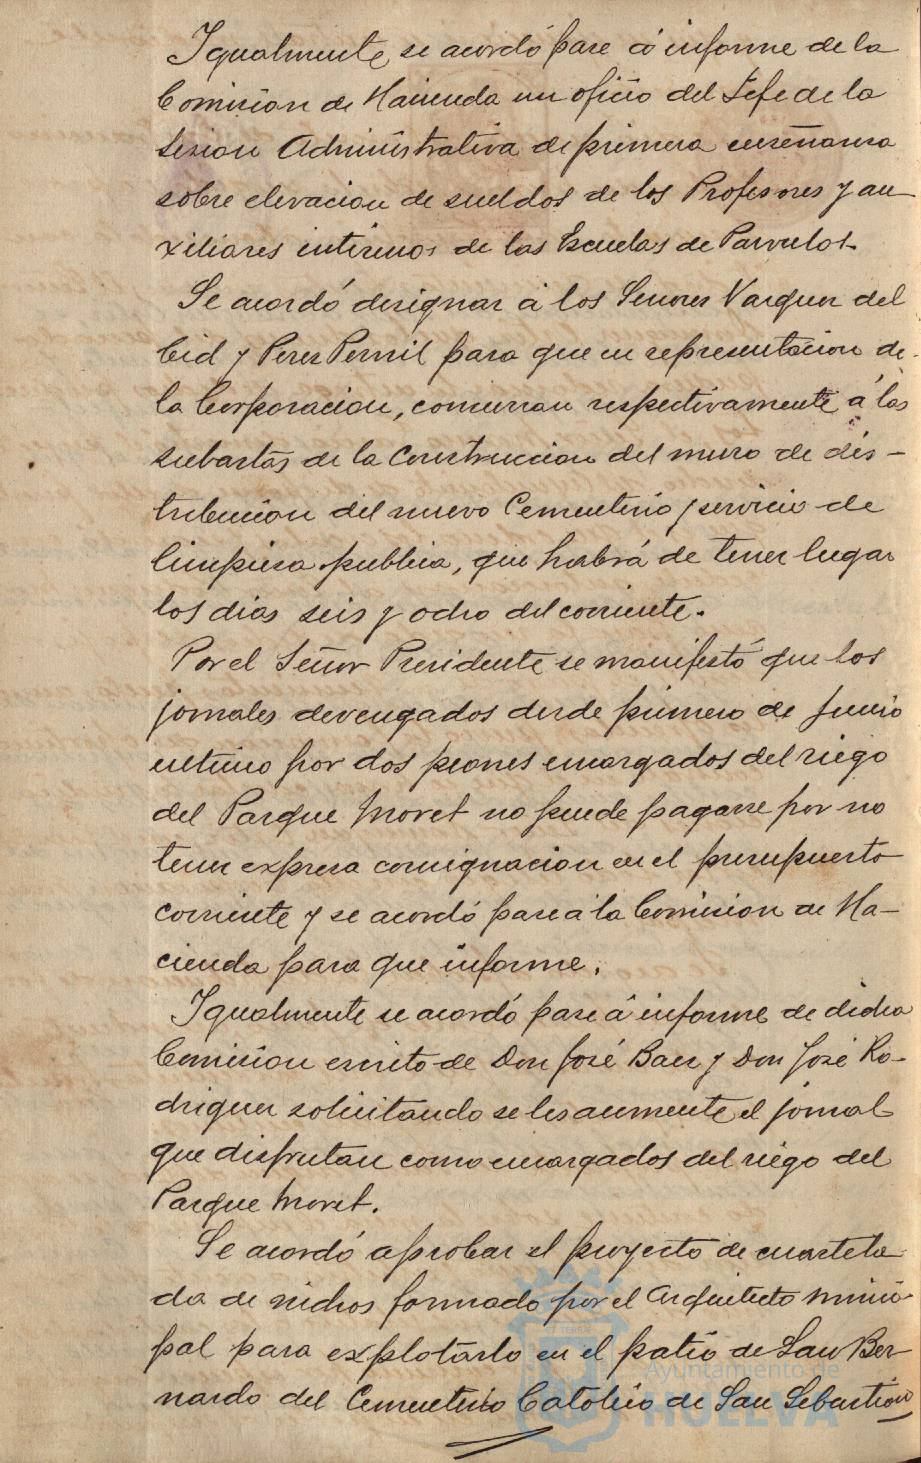 Igualmente se acordó pase á informe de la
Comision de Hacienda un oficio del Jefe de la
Sesion Administrativa de primera enseñanza
sobre elevacion de sueldos de los Profesores y au
xiliares interinos de las Escuelas de Parvulos.
Se acordó designar á los Señores Vazquez del
Cid y Perez Pernil para que en representacion de
la Corporacion, concurran respectivamente á las
subastas de la Construccion del muro de dis-
tribucion del nuevo Cementerio y servicio de
limpieza publica, que habrá de tener lugar
los dias seis y ocho del corriente.
Por el Señor Presidente se manifestó que los
jornales devengados desde primero de Junio
ultimo por dos peones encargados del riego
del Parque Moret no puede pagarse por no
tener expresa consignacion en el presupuesto
corriente y se acordó pase á la Comision de Ha-
cienda para que informe.
Igualmente se acordó pase á informe de dicha
Comision escrito de Don José Baez y Don José Ro-
driguez solicitando se les aumente el jornal
que disfrutan como encargados del riego del
Parque Moret.
Se acordó aprobar el proyecto de cuartela
da de nichos formado por el Arquitecto munici-
pal para explotarlo en el patio de San Ber-
nardo del Cementerio Católico de San Sebastian
Ayuntamiento de
HUELVA